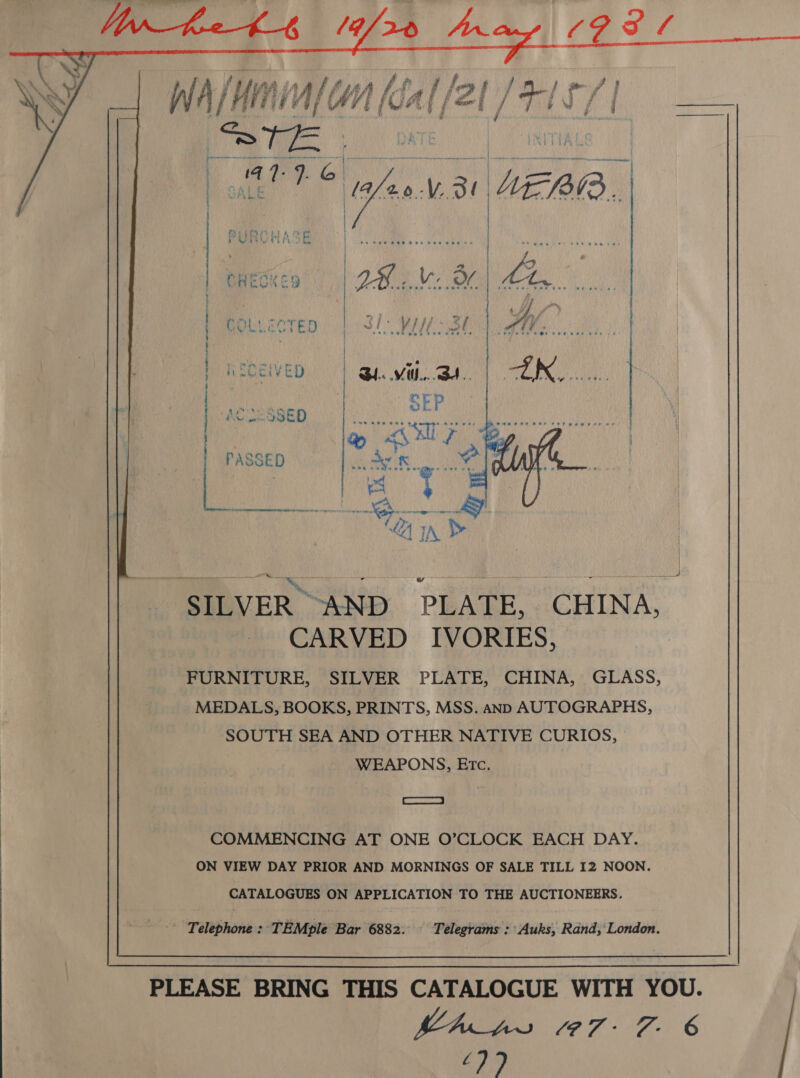 19/20 May 1931
WA/HMM/CM/Sal/21/715/1
STE DATE INITIALS
197.7.6
SALE 19/20.V.31 WEBB.
PURCHASE
CHECKED 28.V.31
COLLECTED 31.VIII.31
RECEIVED 31.VIII.31.
ACCESSED SEP
PASSED
SILVER AND PLATE, CHINA,
CARVED IVORIES,
FURNITURE, SILVER PLATE, CHINA, GLASS,
MEDALS, BOOKS, PRINTS, MSS. AND AUTOGRAPHS,
SOUTH SEA AND OTHER NATIVE CURIOS,
WEAPONS, ETC.
COMMENCING AT ONE O'CLOCK EACH DAY.
ON VIEW DAY PRIOR AND MORNINGS OF SALE TILL 12 NOON.
CATALOGUES ON APPLICATION TO THE AUCTIONEERS.
Telephone : TEMple Bar 6882. Telegrams : Auks, Rand, London.
PLEASE BRING THIS CATALOGUE WITH YOU.
197. 7. 6